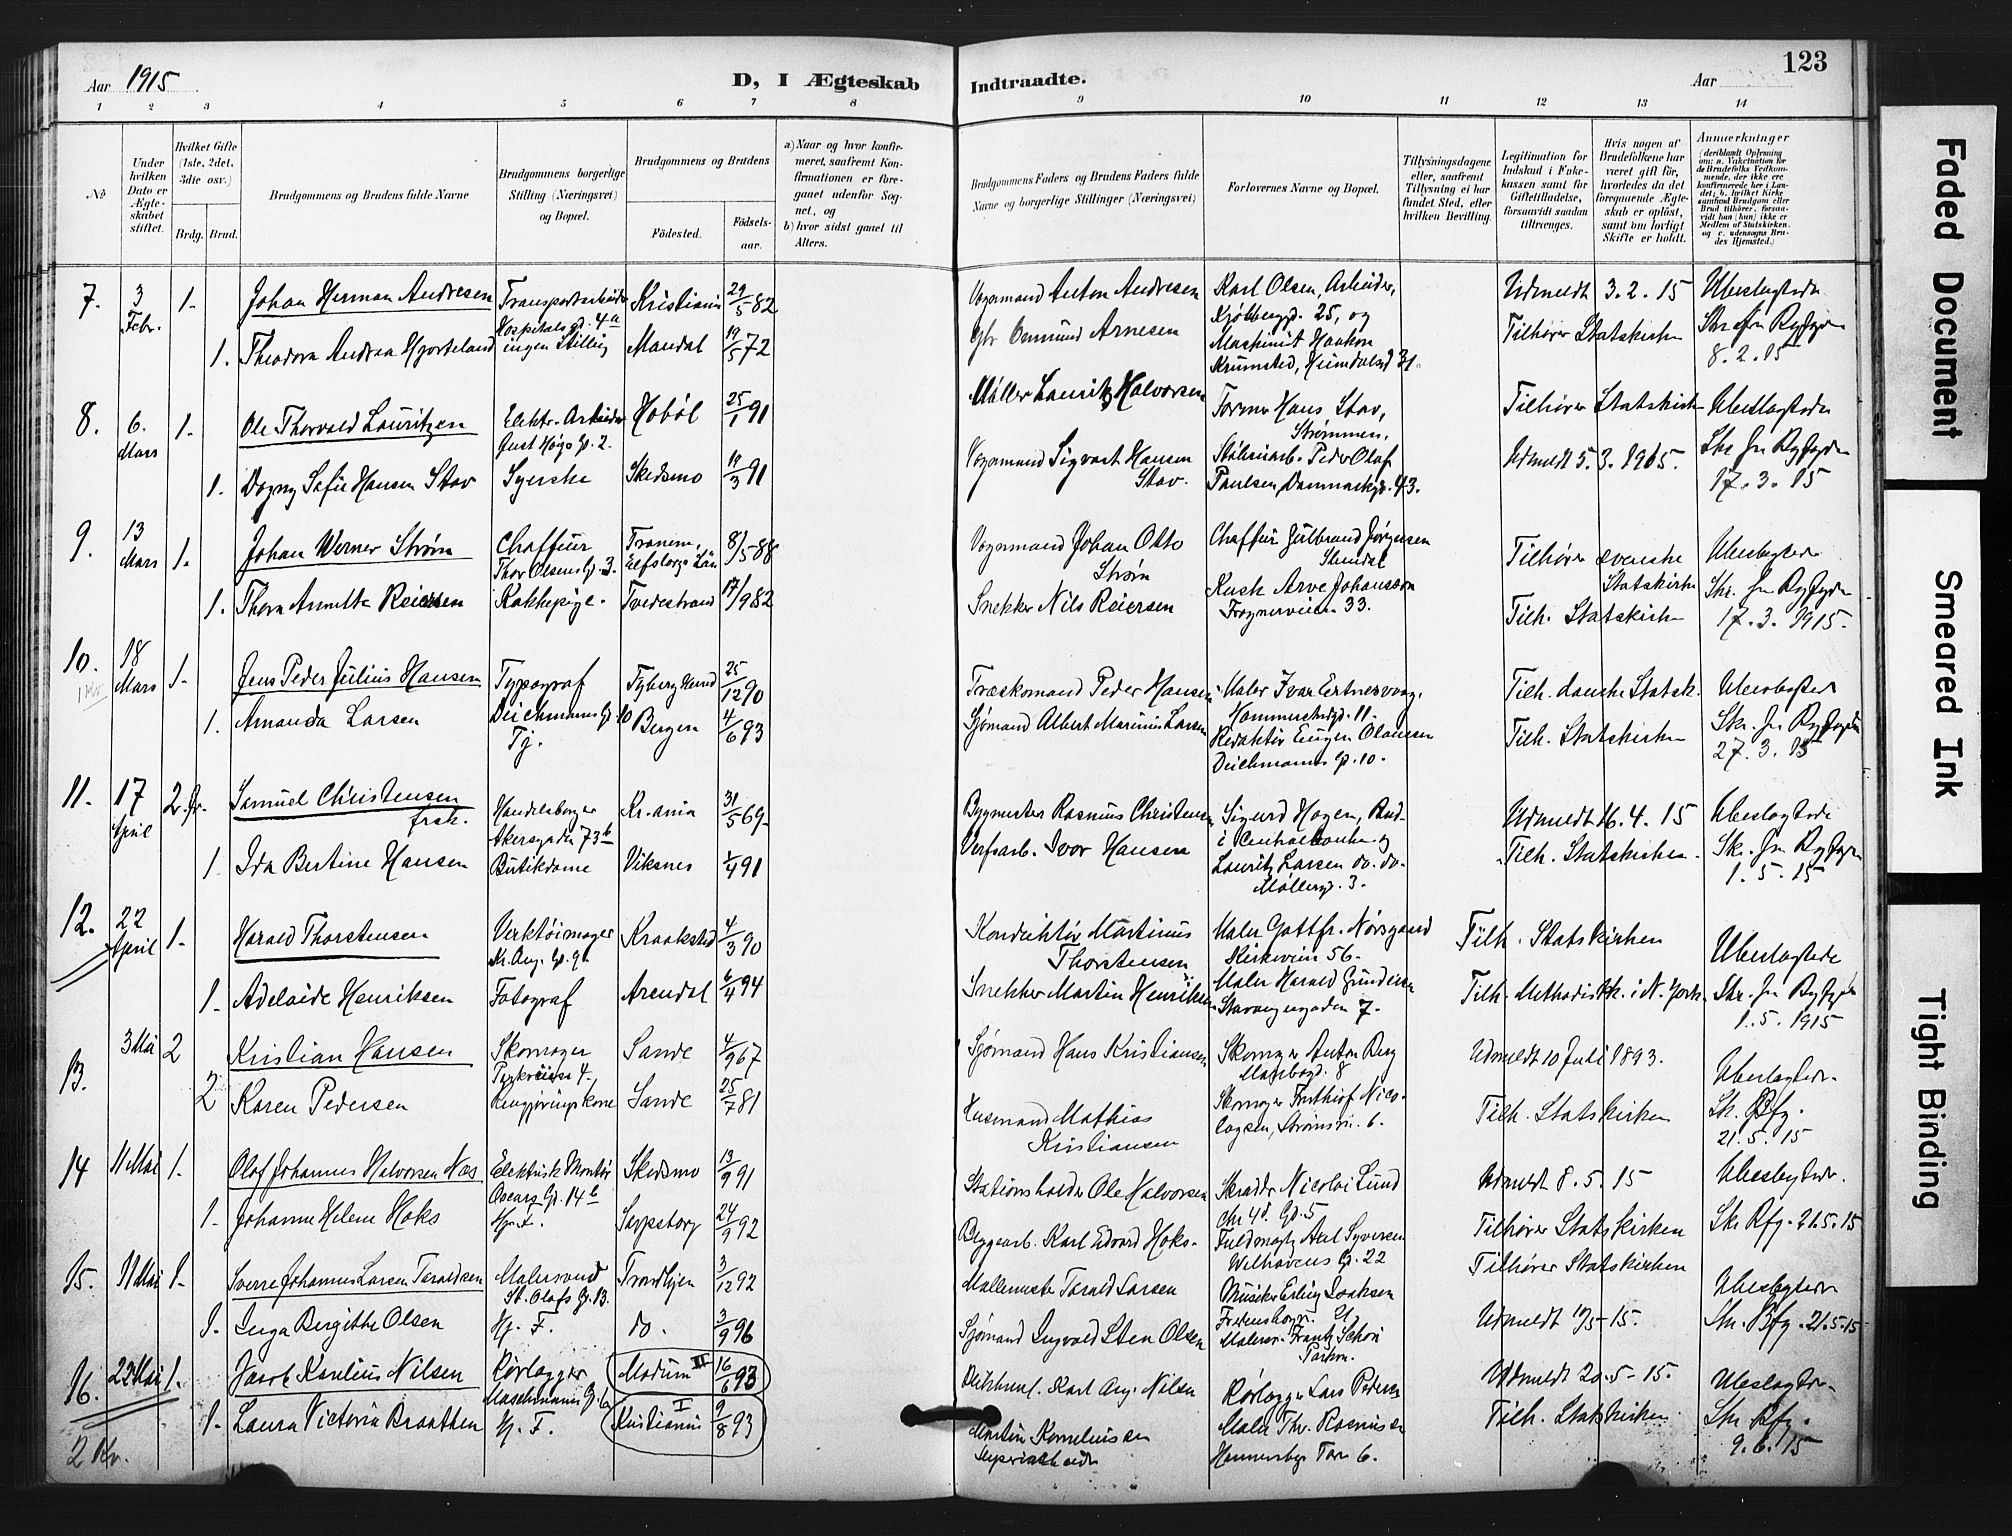 Aar 1915
D, I Ægteskab Indtraadte.
Aar
123
1 2 3 4 5 6 7 8 9 10 11 12 13 14
No
Under hvilken Dato er Ægteskabet stiftet.
Hvilket Gifte (1ste, 2det, 3die osv.)
Brdg. Brud.
Brudgommens og Brudens fulde Navne
Brudgommens borgerlige Stilling (Næringsvei) og Bopæl.
Brudgommens og Brudens
Födested. Födselsaar.
a) Naar og hvor konfirmeret, saafremt Konfirmationen er foregaaet udenfor Sognet, og
b) hvor sidst gaaet til Alters.
Brudgommens Faders og Brudens Faders fulde Navne og borgerlige Stillinger (Næringsvei)
Forlovernes Navne og Bopæl.
Tillysningsdagene eller, saafremt Tillysning ei har fundet Sted, efter hvilken Bevilling.
Legitimation for Indskud i Fakekassen samt for Giftetilladelse, forsaavidt saadan tiltrænges.
Hvis nogen af Brudefolkene har været gift för, hvorledes da det foregaaende Ægteskab er oplöst, samt om lovligt Skifte er holdt.
Anmærkninger
7. 3 Febr. 1. Johan Herman Andresen Transportarbeider Hospitalsgd. 4a Kristiania 29/5 82
Vognmand Anton Andresen
Karl Olsen, Arbeider, Kjølberggd. 25, og
Udmeldt 3.2.15
Ubeslægtede
1. Theodora Andrea Hjorteland ingen Stilling Mandal 19/5 72
Gbr. Omund Arnesen
Maskinist Haakon Krumsted, Heimdalsgd 31.
Tilhører Statskirken
8.2.15
8. 6. Mars 1. Ole Thorvald Lauritzen Elektr. Arbeider Hobøl 25/1 91
Møller Lauritz Halvorsen
Former Hans Stav, Strømmen,
Tilhører Statskirken
Ubeslægtede
1. Dagny Sofie Hansen Stav Syerske Skedsmo 19/3 91
Vognmand Sigvart Hansen Stav.
Peder Olaf Paulsen, Danmarksgd. 43.
Udmeldt 5.3.1915.
17.3.15
9. 13 Mars 1. Johan Werner Strøm Chaffeur Thor Olsens Gd. 3. Tranem, Elfsborgs Län 8/5 88
Vognmand Johan Otto Strøm
Chaffeur Gulbrand Jørgensen
Tilhører svenske Statskirke
Ubeslægtede
1. Thora Annette Reiersen Kokkepige. Tvedestrand 17/9 82
Snekker Nils Reiersen
Kusk Arve Johansson Frognerveien 33.
Tilh. Statskirken
17.3.1915.
10. 18 Mars 1. Jens Peder Julius Hansen Typograf Deichmans Gd. 10 25/12 90
Peder Hansen
Maler Ivar
Hammerstadgd. 11.
Tilh. danske Statsk.
Ubeslægtet
1. Amanda Larsen Tj. Bergen 4/6 93
Sjømand Albert Marinius Larsen
Redaktør Eugen Olaussen Deichmans Gd. 10.
Tilh. Statskirken
27.3.15
11. 17 April 2. fr. Samuel Christensen frsk. Handelsborger Akersgaden 73b Kr.ania 31/5 69
Bygmester Rasmus Christensen
Sigurd Hagen, Bud i Centralbanken og
Udmeldt 16.4.15
Ubeslægtede
1. Ida Bertine Hansen Butikdame Viksnes 1/4 91
Verftsarb. Ivar Hansen
Lauritz Larsen do. do. Møllergd. 3.
Tilh. Statskirken.
1.5.15
12. 22 April 1. Harald Thorstensen Verktøimager Kr. Aug. Gd. 9 Kraakstad 4/3 90
Konduktør Martinus Thorstensen
Maler Gottfr. Nørsgaard Kirkeveien 56.
Tilh. Statskirken
Ubeslægtede
1. Adelaide Henriksen Fotograf Arendal 6/4 94
Snekker Martin Henriksen
Maler Harald Gundersen Stavangergaden 7.
Tilh. Methodistk. i N. York
1.5.1915
13. 3 Mai 2 Kristian Hansen Skomager Parkveien 4. Sande 4/9 67
Sjømand Hans Kristiansen
Skomager Anton Berg
Udmeldt 10 Juli 1893.
Ubeslægtede.
2 Karen Pedersen Rengjøringskone Sande 25/7 81
Husmand Mathias Kristiansen
Skomager Frithiof Nicolaysen, Strømsvn. 6.
Tilh. Statskirken
21.5.15
14 11 Mai 1. Olaf Johannes Halvorsen Næs Elektrisk Montør Oscars Gd. 14b Skedsmo 13/9 91
Stationsholder Ole Halvorsen
Skrædder Nicolai Lund Chr 4d. Gd. 5
Udmeldt 8.5.15
Ubeslægtede.
1. Johanne Helene Hoks Hj. F. Sarpsborg 24/9 92
Bryggearb. Karl Edvard Hoks.
Fuldmægtig Axel Syversen Welhavens Gd. 22
Tilhører Statskirken
21.5.15
15. 11 Mai 1. Sverre Johannes Larsen Taraldsen Malersvend St. Olafs Gd. 13. Trondhjem 3/12 92
Møllemester Tarald Larsen
Musiker Erling Isaksen
Tilhører Statskirken
Ubeslægtede
1. Inga Bergithe Olsen Hj. F. do. 3/9 96
Sjømand Ingvald Sten Olsen
Malersv. Frantz Schøn Parkvn.
Udmeldt 11/5-15.
21.5.15
16. 22 Mai 1. Jacob Kornelius Nilsen Rørlægger Maschmanns Gd. Modum II 16/6 93
Karl Aug. Nilsen
Rørlægger Lars Pedersen
Udmeldt 20.5-15.
Ubeslægtede.
1. Laura Victoria Braathen Hj. F. Kristiania I 9/8 93
Martin Korneliussen
Maler Thr. Rasmussen
Tilh. Statskirken.
9.6.15
2 Kr.
Faded Document
Smeared Ink
Tight Binding